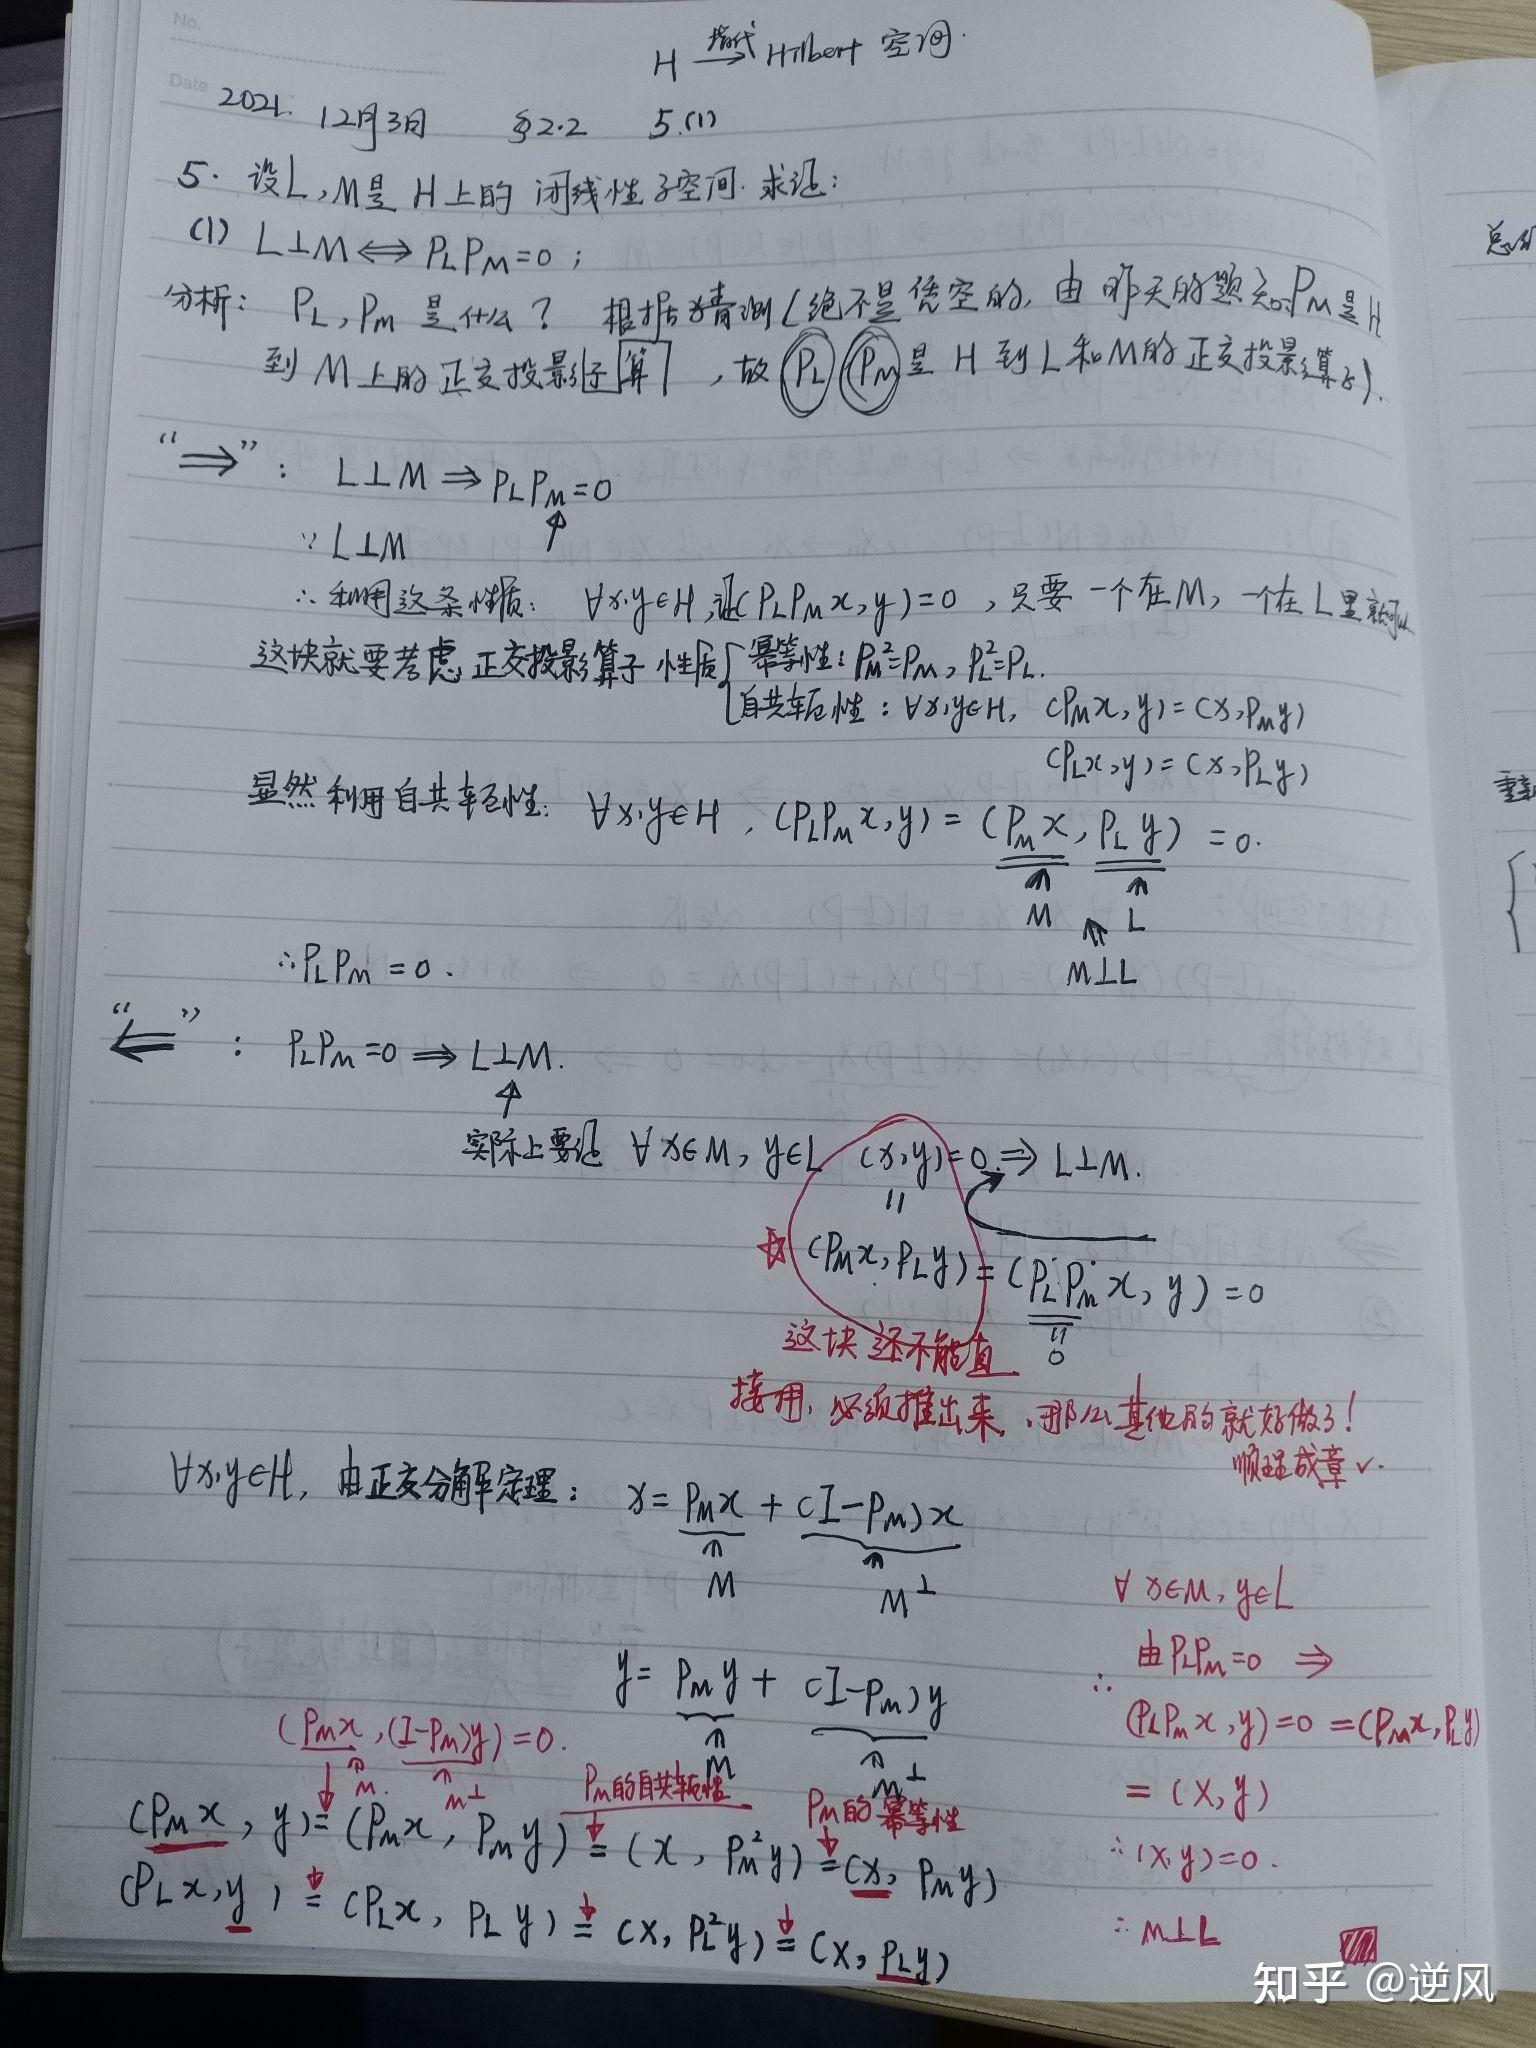 No.
Date
H 指代→ Hilbert 空间.
2021. 12月3日 §2.2 5.(1)
5. 设L,M是 H上的 闭线性子空间. 求证:
(1) L⊥M ⟺ P_L P_M = 0 ;
分析: P_L, P_M 是什么? 根据猜测(绝不是凭空的, 由 昨天的题知P_M是H
到 M 上的正交投影子算, 故 P_L P_M 是 H 到 L和M的正交投影算子).
“⟹” : L⊥M ⟹ P_L P_M = 0
∵ L⊥M
∴ 利用这条性质: ∀x,y∈H, 证(P_L P_M x, y) = 0 , 只要 一个在M, 一个在L里就
这块就要考虑 正交投影算子 性质 { 幂等性: P_M² = P_M, P_L² = P_L.
自共轭性: ∀x,y∈H, (P_M x, y) = (x, P_M y)
(P_L x, y) = (x, P_L y)
显然利用自共轭性: ∀x,y∈H , (P_L P_M x, y) = (P_M x, P_L y) = 0.
M L
M⊥L
∴ P_L P_M = 0 .
“⟸” : P_L P_M = 0 ⟹ L⊥M.
实际上要证 ∀x∈M, y∈L (x,y) = 0. ⟹ L⊥M.
=
☆ (P_M x, P_L y) = (P_L P_M x, y) = 0
=
0
这块还不能直
接用, 必须推出来, 那么其他的就好做了!
顺理成章 ✓.
∀x,y∈H, 由正交分解定理: x = P_M x + (I-P_M)x
M M⊥
y = P_M y + (I-P_M)y
M M⊥
(P_M x, (I-P_M)y) = 0.
M. M⊥
P_M的自共轭性 P_M的幂等性
(P_M x, y) = (P_M x, P_M y) = (x, P_M² y) = (x, P_M y)
(P_L x, y) = (P_L x, P_L y) = (x, P_L² y) = (x, P_L y)
∀x∈M, y∈L
∴ 由P_L P_M = 0 ⟹
(P_L P_M x, y) = 0 = (P_M x, P_L y)
= (x, y)
∴ (x,y) = 0.
∴ M⊥L
知乎 @逆风